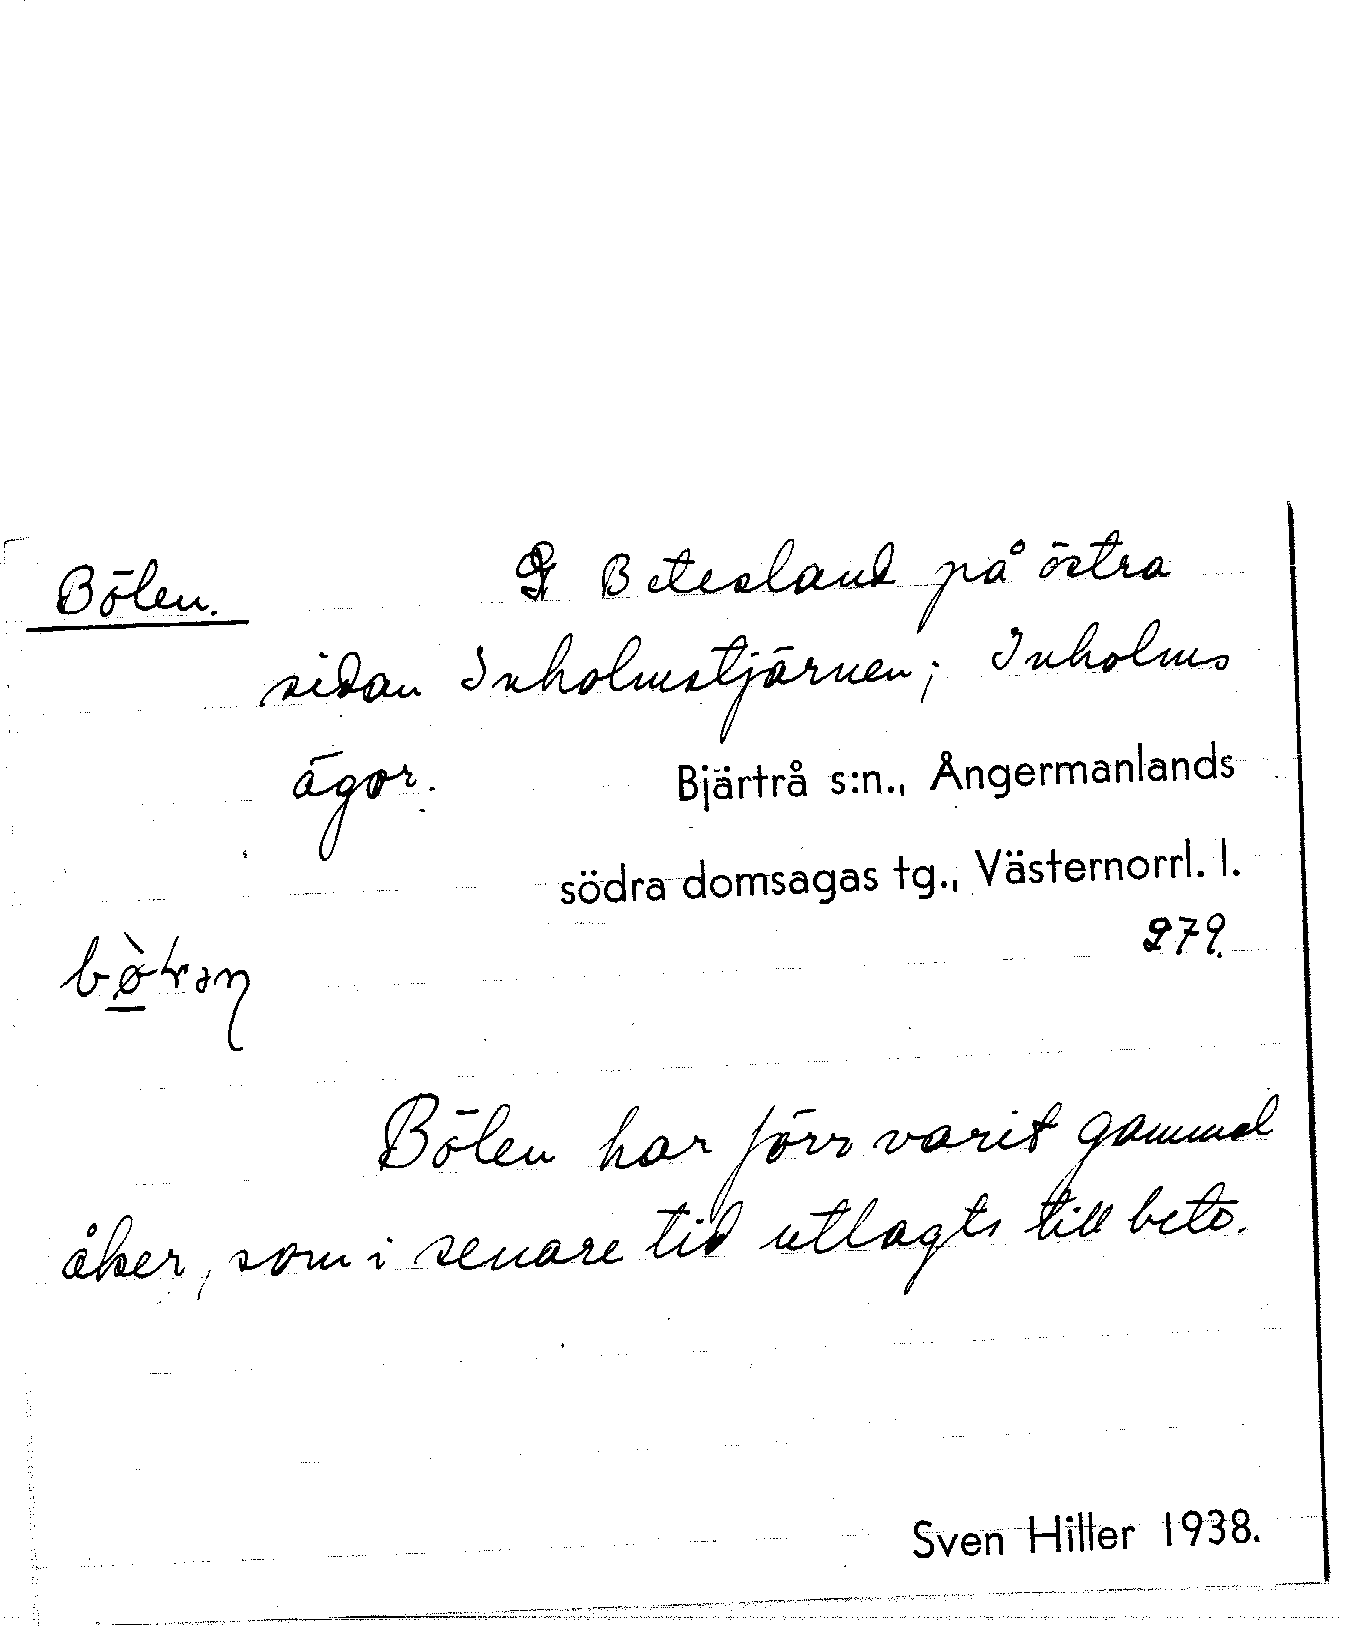 Bölen. Betesland på östra
sidan Inholmstjärnen; Inholms
ägor. Bjärtrå s:n., Ångermanlands
södra domsagas tg., Västernorrl. l.
279.
Bölen har förr varit gammal
åker, som i senare tid utlagts till bete.
Sven Hiller 1938.